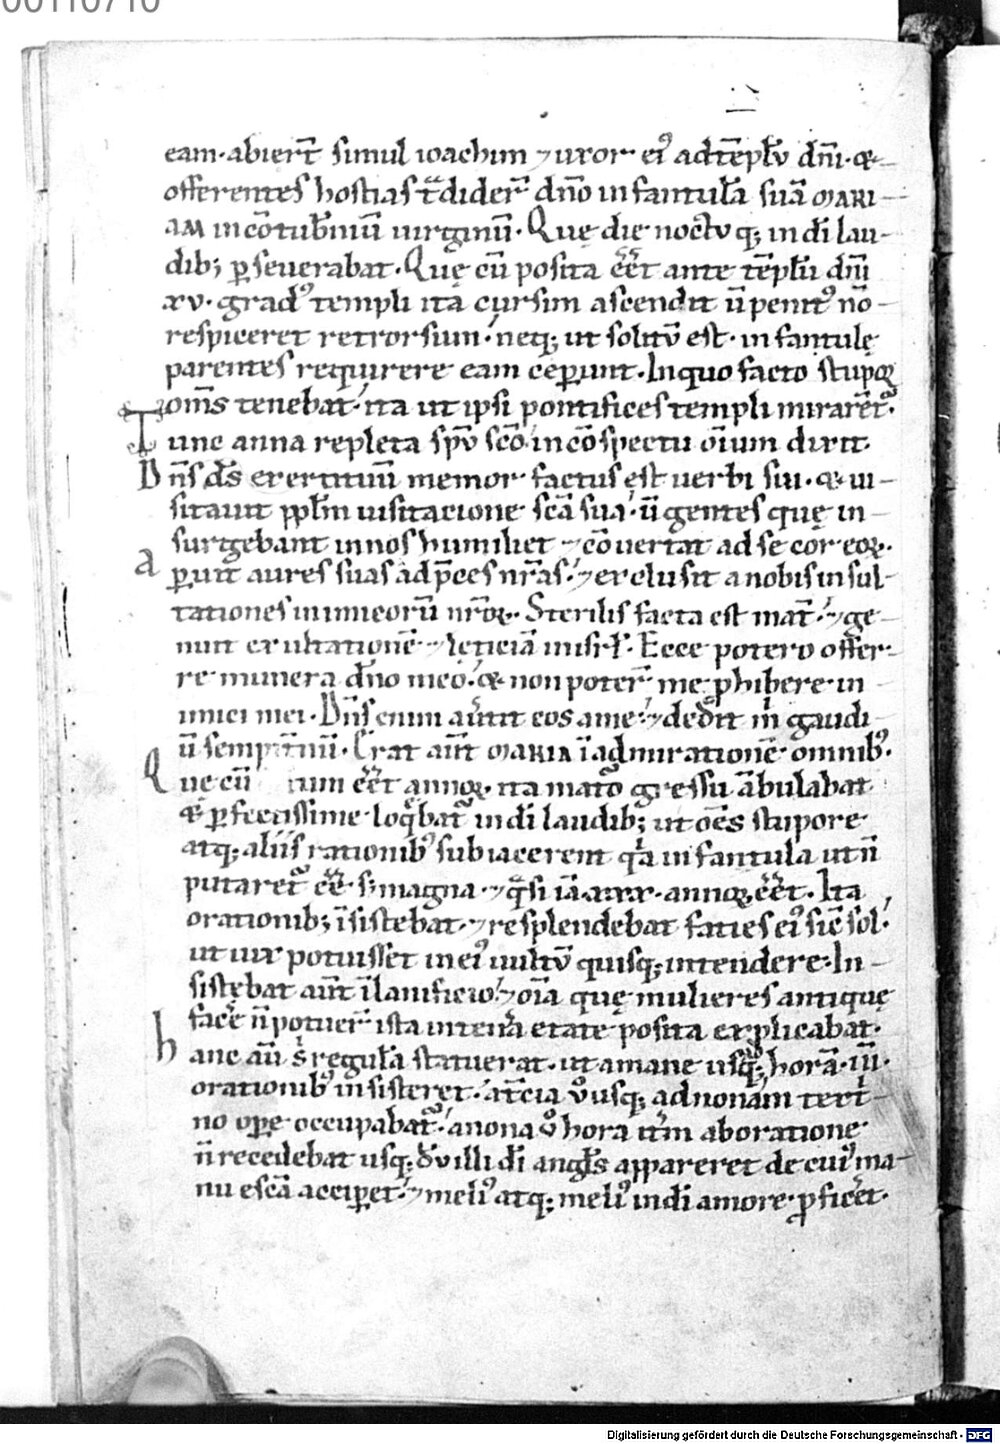 00110710
eam·abier̄t simul ioachim ⁊uxor ei᷒ adtēplū dn̄i·&
offerentes hostias t̄dider̄ dn̄o infantulā suā MARI
AM incōtub̄niū uirginū· Quę die noctuq; indī lau
dib; ꝑseuerabat· Quę cū posita eēt ante tēplū dn̄i
xv· grad᷒ templi ita cursim ascendit ū penit᷒ nō
respiceret retrorsum· neq; ut solitū est· infantulę
parentes requirere eam ceperunt· Inquo facto stupor
om̄s tenebat· ita ut ipsi pontifices templi mirarent᷒·
Tunc anna repleta spū scō incōspectu oīum dixit
Dn̄s ds̄ exercituū memor factus est uerbi sui· & ui
sitauit pplm̄ uisitacione scā sua· ū gentes quę in
surgebant innos humiliet ⁊cōuertat adse cor eoꝝ·
aperuit aures suas adp̄ces nr̄as· ⁊exclusit anobis insul
tationes inimicorū nr̄oꝝ· Sterilis facta est mat̄· ⁊ge
nuit exultationē ⁊lęticiā inisrl̄· Ecce potero offer
re munera dn̄o meo· & non poter̄ me ꝓhibere in
imici mei· Dn̄s enim au̅tit eos ame· ⁊dedit m̄ gaudi
ū sempit̄nū· Erat aūt MARIA īadmirationē omnib᷒·
Quę cū ium eēt annoꝝ· ita maturo gressu ābulabat
& ꝑfectissime loq̄bat᷒ indī laudib; ut oēs stupore
atq; aliis rationib᷒ subiacerent q̄a infantula utn̄
putaret᷒ eē· s; magna ⁊q̄si iā·xxx· annoꝝ eēt· Ita
orationib; īsistebat· ⁊resplendebat faties ei᷒ sic̄ sol·
ut uix potuisset inei᷒ uultū quisq; intendere· In
sistębat aūt īlanificio· ⁊oīa quę mulieres antiquę
facēr n̄potuer̄ ista intenera etate posita explicabat·
hanc aū s̄ regulā statuerat· ut amane usq; horā·iii·
orationib᷒ insisteret· at̄cia ū usq; adnonam texti
no oꝑe occupabat᷒· anona ū hora it̄m aboratione
n̄recedebat usq; dū illi dī angl̄s appareret decui᷒ ma
nu escā acciꝑet· ⁊meli᷒ atq; meli᷒ indī amore ꝓficēt·
Digitalisierung gefördert durch die Deutsche Forschungsgemeinschaft · DFG